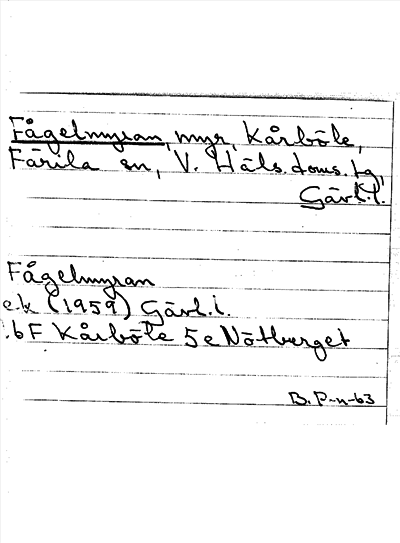 Fågelmyran, myr, Kårböle,
Färila sn, V. Häls. doms. tg,
Gävl.l.
Fågelmyran
ek (1959) Gävl.l.
bF Kårböle 5e Nötberget
B.P-n-63